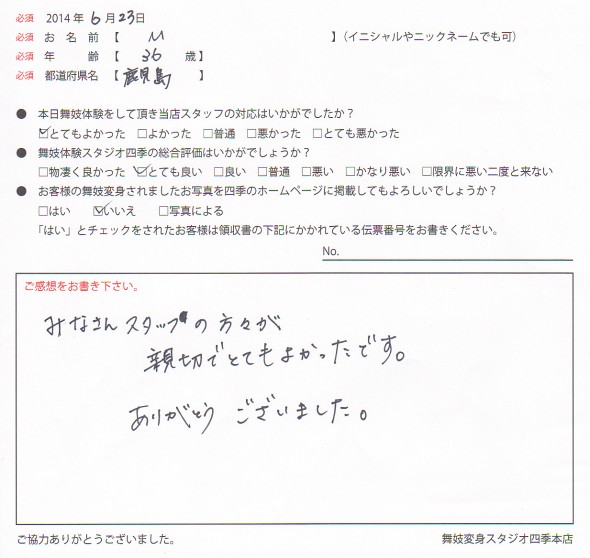 必須 2014年6月23日
必須 お名前【 M 】(イニシャルやニックネームでも可)
必須 年齢【 36 歳】
必須 都道府県名【鹿児島】
● 本日舞妓体験をして頂き当店スタッフの対応はいかがでしたか?
☑とてもよかった □よかった □普通 □悪かった □とても悪かった
● 舞妓体験スタジオ四季の総合評価はいかがでしょうか?
□物凄く良かった ☑とても良い □良い □普通 □悪い □かなり悪い □限界に悪い二度と来ない
● お客様の舞妓変身されましたお写真を四季のホームページに掲載してもよろしいでしょうか?
□はい ☑いいえ □写真による
「はい」とチェックをされたお客様は領収書の下記にかかれている伝票番号をお書きください。
No.
ご感想をお書き下さい。
みなさんスタッフの方々が
親切でとてもよかったです。
ありがとうございました。
ご協力ありがとうございました。
舞妓変身スタジオ四季本店